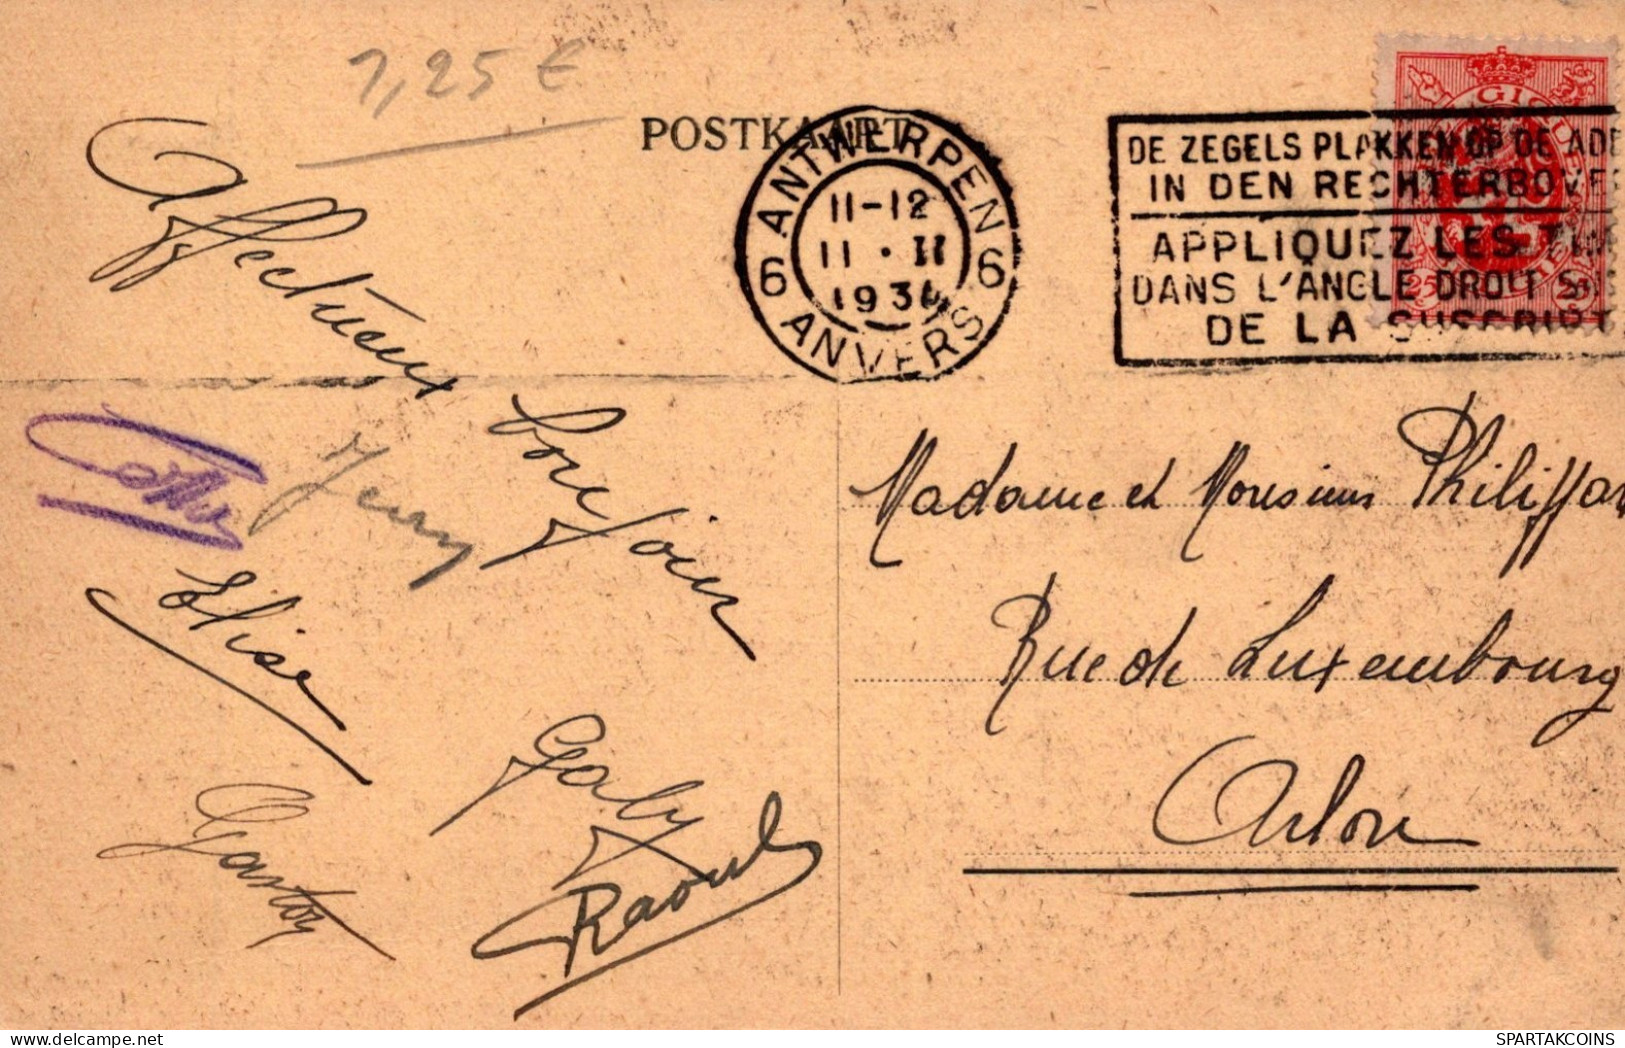 1,25 €
POSTKAART
ANTWERPEN
6 6
11-12
11 · II
193
ANVERS
DE ZEGELS PLAKKEN OP DE ADR
IN DEN RECHTERBOVE
APPLIQUEZ LES TIM
DANS L'ANGLE DROIT SUP
DE LA SUSCRIPT
BELGIQUE
25
Affectueux
bonjour
Jenny
Elise
Gaby
Gaston
Raoul
Madame et Monsieur Philippar
Rue de Luxembourg
Arlon
SPARTAKCOINS